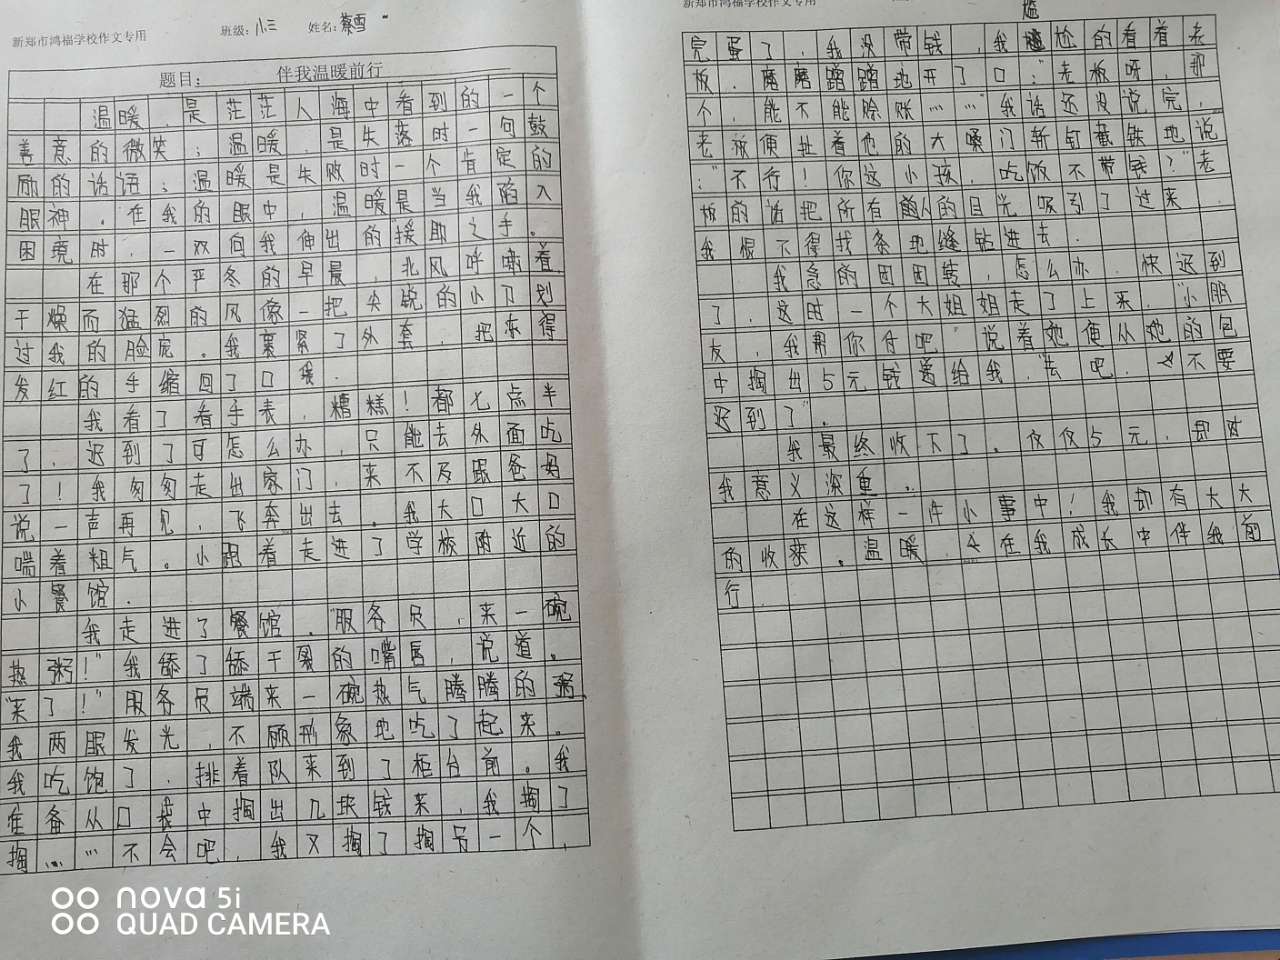 新郑市鸿福学校作文专用 班级：小三 姓名：蔡雪
题目：伴我温暖前行
温暖，是茫茫人海中看到的一个
善意的微笑；温暖，是失落时一句鼓
励的话语；温暖是失败时一个肯定的
眼神。在我的眼中，温暖是当我陷入
困境时，一双向我伸出的"援助之手。
在那个严冬的早晨，北风呼啸着
干燥而猛烈的风像一把尖锐的小刀划
过我的脸庞。我裹紧了外套，把冻得
发红的手缩回了口袋。
我看了看手表，糟糕！都七点半
了，迟到了可怎么办，只能去外面吃
了！我匆匆走出家门，来不及跟爸妈
说一声再见，飞奔出去。我大口大口
喘着粗气。小跑着走进了学校附近的
小餐馆．
我走进了餐馆．"服务员，来一碗
热粥！"我舔了舔干裂的嘴唇，说道。
"来了！"服务员端来一碗热气腾腾的粥，
我两眼发光，不顾形象地吃了起来。
我吃饱了，排着队来到了柜台前。我
准备从口袋中掏出几块钱来，我掏了
掏……不会吧，我又掏了掏另一个，
新郑市鸿福学校作文专用
尴
完蛋了，我没带钱，我尴尬的看着老
板．磨磨蹭蹭地开了口："老板呀，那
个，能不能赊账……"我话还没说完，
老板便扯着他的大嗓门斩钉截铁地说
："不行！你这小孩，吃饭不带钱？"老
板的话把所有人的目光吸引了过来．
我恨不得找条地缝钻进去．
我急的团团转，怎么办，快迟到
了，这时一个大姐姐走了上来，"小朋
友，我帮你付吧"说着她便从她的包
中掏出5元钱递给我，"去吧，不要
迟到了"。
我最终收下了。仅仅5元，却对
我意义深重。
在这样一件小事中！我却有大大
的收获。温暖，在我成长中伴我前
行．
nova 5i
QUAD CAMERA